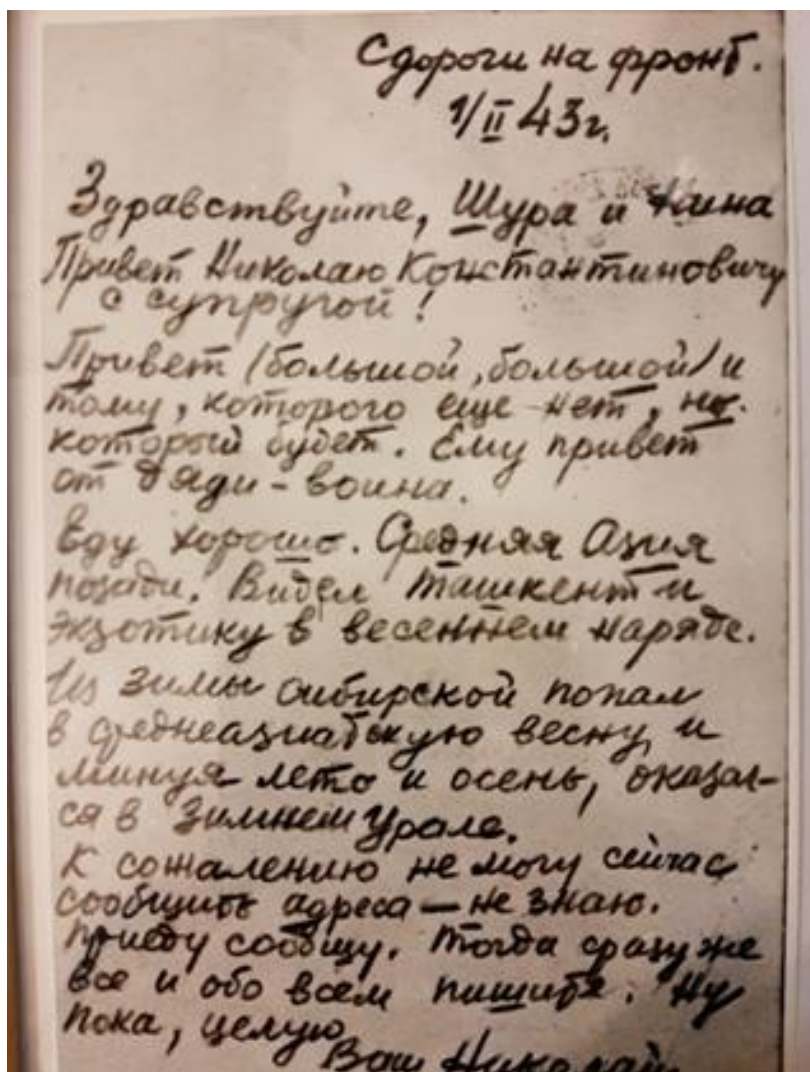 С дороги на фронт.
1/II 43г.
Здравствуйте, Шура и
Привет Николаю Константиновичу
с супругой!
Привет (большой, большой) и
тому, которого еще нет, но
который будет. Ему привет
от дяди-воина.
Еду хорошо. Средняя Азия
позади. Видел Ташкент и
экзотику в весеннем наряде.
Из зимы сибирской попал
в среднеазиатскую весну и
минуя лето и осень, оказал-
ся в зимнем Урале.
К сожалению не могу сейчас
сообщить адреса — не знаю.
Приеду сообщу. Тогда сразу же
все и обо всем пишите. Ну
пока, целую
Ваш Николай